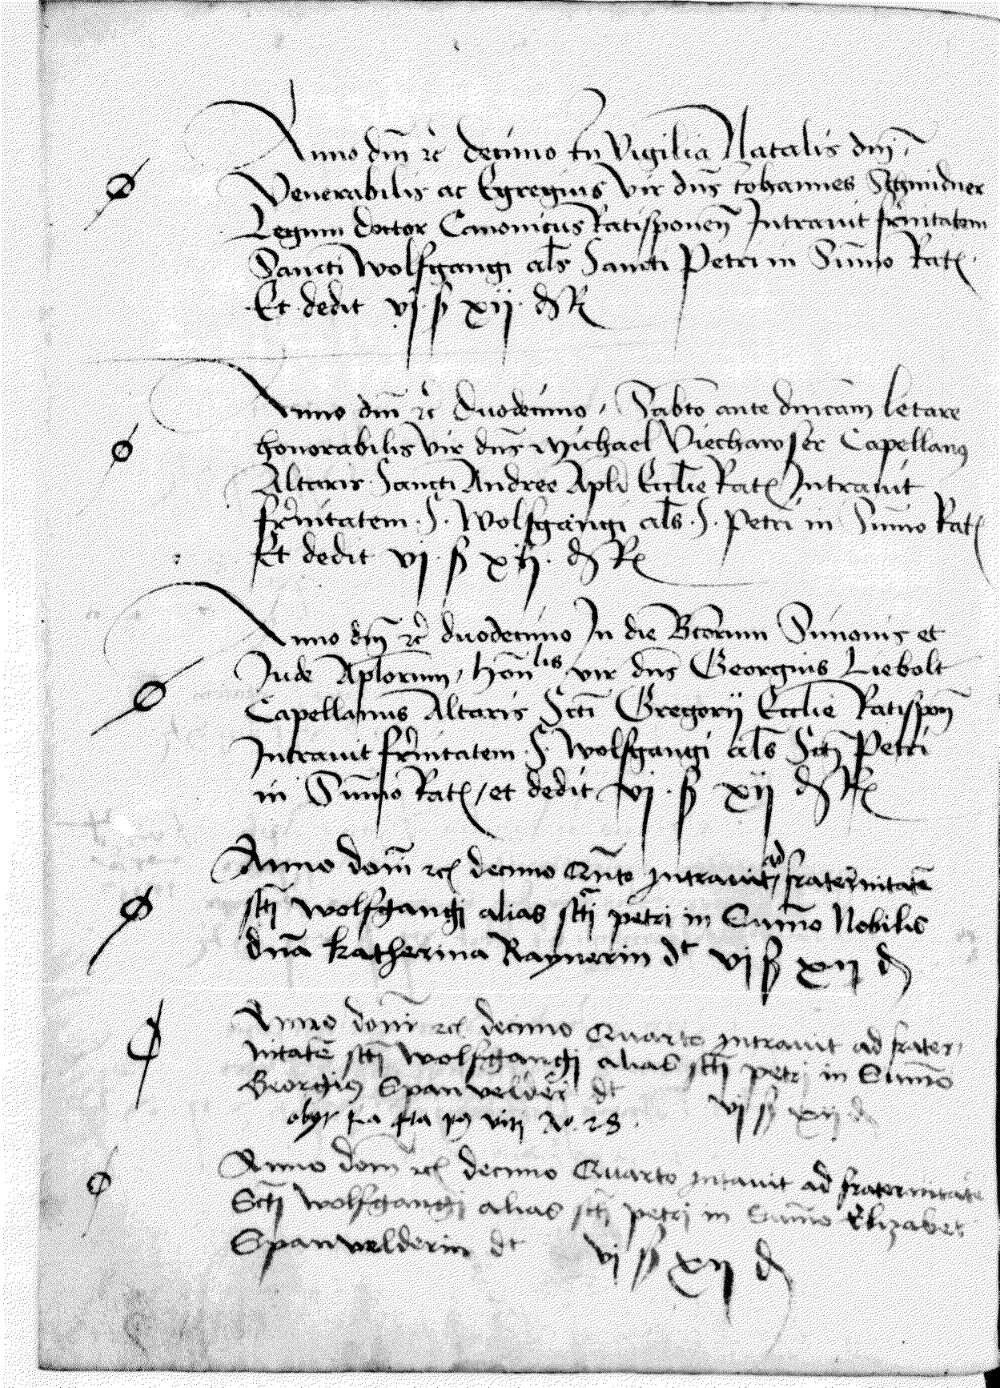 Anno dñi ꝛc̃ decimo In Vigilia Natalis dñi,
Venerabilis ac Egregius vir dñs Johannes Schmidner
Legum doctor Canonicus Ratisponeñ Intravit fr̃nitatem
Sancti Wolfgangi al̃s Sancti Petri in Sum̃o Rat
Et dedit vj ß xij d R
Anno dñi ꝛc̃ duodecimo, Sabt̃o ante dñicam letare
honorabilis vir dñs Michael Viechawser Capellanꝰ
Altaris Sancti Andree Apl̃i Eccl̃ie Rat Intravit
fr̃nitatem S. Wolfgangi al̃s S. Petri in Sum̃o Rat
Et dedit vj ß xij d R
Anno dñi ꝛc̃ duodecimo In die Bt̃orum Simonis et
Jude Apl̃orum, hon̄lis vir dñs Georgius Liebolt
Capellanus Altaris Sct̃i Gregorij Eccl̃ie Ratispoñ
Intravit fr̃nitatem S. Wolfgangi al̃s Sct̃i Petri
in Sum̃o Rat / et dedit vj ß xij d R
Anno domĩ ꝛc decimo Qñto Intravit ad fraternitatẽ
sct̃i wolfgangi alias sct̃i petri in Sum̃o Nobilis
dñã katherina Raynerin dt vj ß xij d
Anno domĩ ꝛc decimo Quarto Intravit ad frater,
nitatẽ sct̃i wolfgangi alias sct̃i petri in Sum̃o
Georgiꝰ Spanvelder dt vj ß xij d
obijt viij Aº 28.
Anno domĩ ꝛc decimo Quarto intravit ad fraternitatẽ
Sct̃i wolfgangi alias sct̃i petri in Sum̃o Elizabet
Spanvelderin dt vj ß xij d